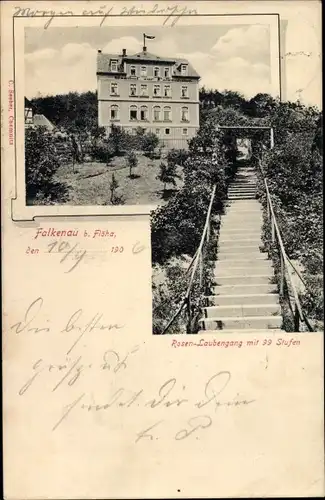 Morgen auf Wiedersehn
C. Seeber, Chemnitz
Falkenau b. Flöha,
den 10/9 190 6
Rosen-Laubengang mit 99 Stufen
die besten
Grüße u.
sendet dir dein